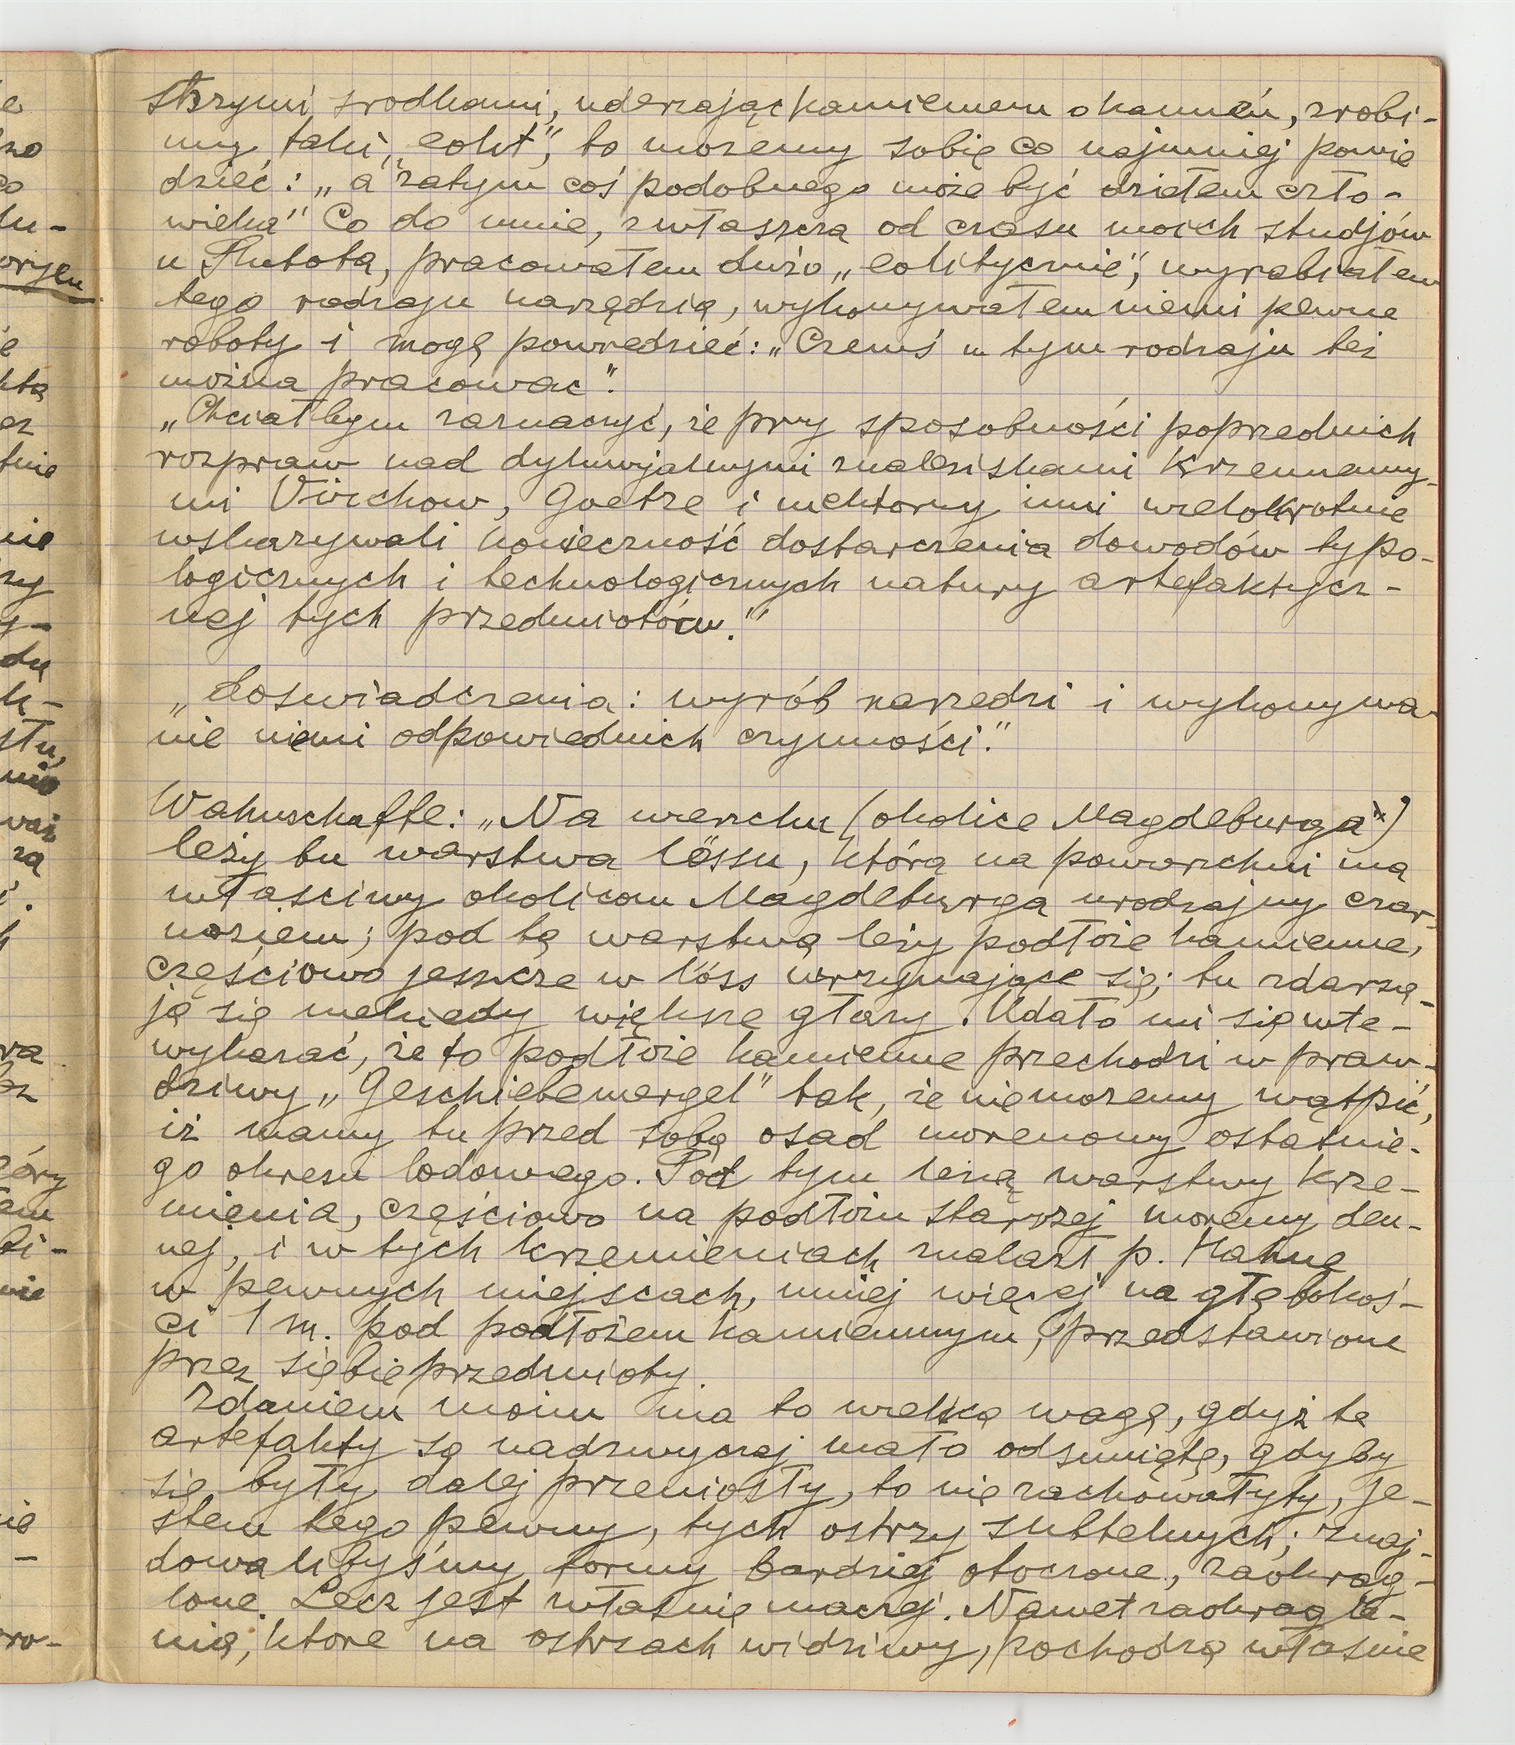 strzymi srodkami, uderzając kamieniem o kamień, zrobi-
my taki „eolit”, to mozemy sobie co najmniej powie
dzieć: „a zatym coś podobnego może być dziełem czło-
wieka” Co do mnie, zwłaszcza od czasu moich studjów
u Rutota, pracowałem dużo „eolitycznie”, wyrabiałem
tego rodzaju narzędzia, wykonywałem niemi pewne
roboty i mogę powiedzieć: „Czemś w tym rodzaju też
można pracować”.
„Chciałbym zaznaczyć, że przy sposobności poprzednich
rozpraw nad dyluwjalnymi znaleziskami krzemienny-
mi Virchow, Goetze i niektórzy inni wielokrotnie
wskazywali konieczność dostarczenia dowodów typo-
logicznych i technologicznych natury artefaktycz-
nej tych przedmiotów.””
„doswiadczenia: wyrób narzedzi i wykonywa-
nie niemi odpowiednich czynności.”
Wahnschaffe: „Na wierzchu (okolice Magdeburga*)
leży tu warstwa lössu, którą na powierzchni ma
właściwy okolicom Magdeburga urodzajny czar-
noziem; pod tą warstwą leży podłoże kamienne,
częściowo jeszcze w löss wrzynające się; tu zdarza-
ją się niekiedy większe głazy. Udało mi się wte-
wykazać, że to podłoże kamienne przechodzi w praw-
dziwy „Geschiebemergel” tak, że nie mozemy wątpić,
iż mamy tu przed sobą osad morenowy ostatnie-
go okresu lodowego. Pod tym leżą warstwy krze-
mienia, częściowo na podłożu starszej moreny den-
nej, i w tych krzemieniach znalazł p. Hahne
w pewnych miejscach, mniej więcej na głębokoś-
ci 1 m. pod podłożem kamiennym, przedstawione
przez siebie przedmioty.
Zdaniem moim ma to wielką wagę, gdyż te
artefakty są nadzwyczaj mało odsunięte, gdyby
się były dalej przeniosły, to nie zachowałyby, je-
stem tego pewny, tych ostrzy subtelnych; znaj-
dowalibyśmy formy bardziej otoczone, zaokrąg-
lone. Lecz jest właśnie inaczej. Nawet zaokrągle-
nia, które na ostrzach widziwy, pochodzą właśnie